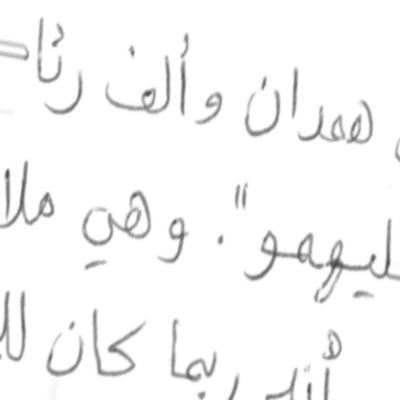 همدان وألف رئا
ليهمو". وهي ملا
ربما كان لل